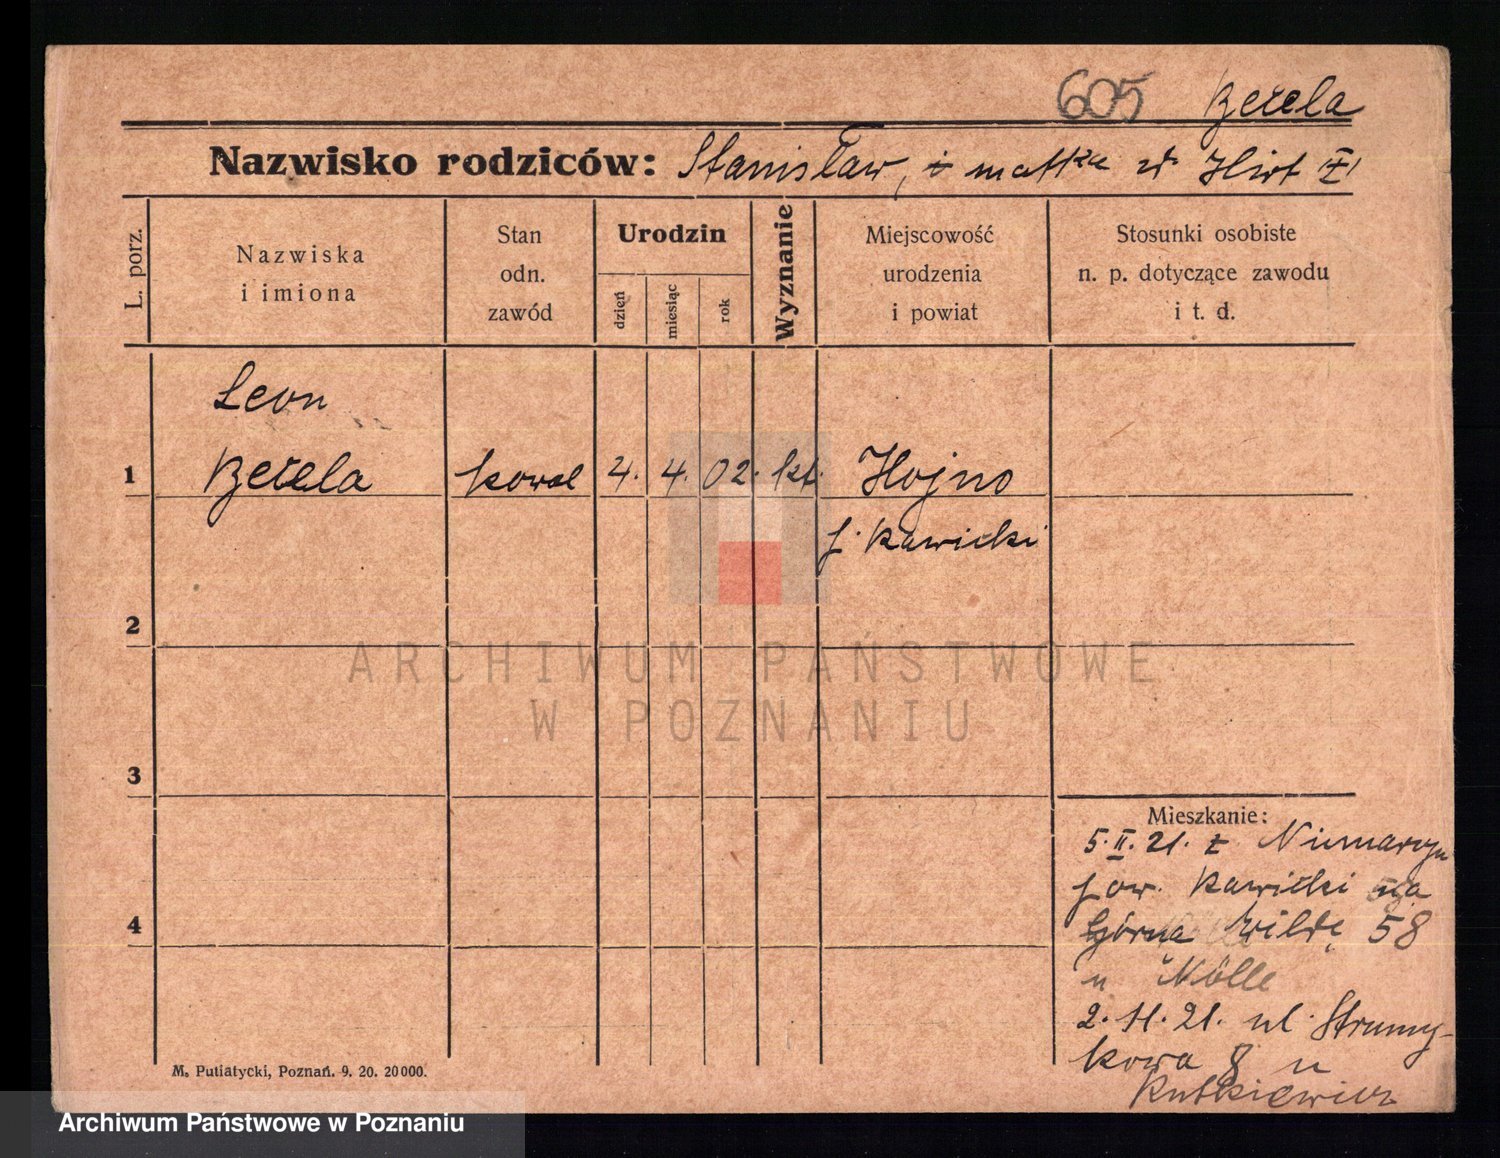 605 Betela
Nazwisko rodziców: Stanisław, i matka zd Hirt
L. porz.
Nazwiska
i imiona
Stan
odn.
zawód
Urodzin
dzień
miesiąc
rok
Wyznanie
Miejscowość
urodzenia
i powiat
Stosunki osobiste
n. p. dotyczące zawodu
i t. d.
Leon
1 Betela kowal 4. 4. 02. kt. Hojno
p. Rawicki
2
3
4
Mieszkanie:
5. II. 21. z
pow. Rawicki na
Górna Wildę 58
u Nölle
2. 11. 21. ul. Strumy-
kowa 8 u
Rutkiewicz
M. Putiatycki, Poznań. 9. 20. 20000.
ARCHIWUM PAŃSTWOWE
W POZNANIU
Archiwum Państwowe w Poznaniu